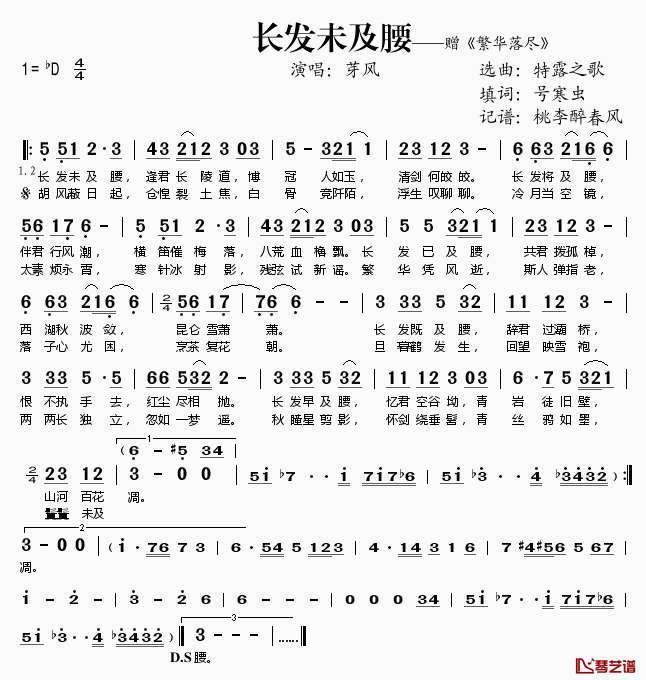 长发未及腰——赠《繁华落尽》
1=♭D 4/4 演唱：芽风 选曲：特露之歌
填词：号寒虫
记谱：桃李醉春风
5 51 2·3 | 43 212 3 03 | 43 212 3 03 | 5 63 216 6
1.2. 长发未及腰，逢君长陵道，博冠人如玉，清剑何皎皎。长发将及腰，
胡风蔽日起，仓惶裂土焦，白骨竞阡陌，浮生叹聊聊。冷月当空镜，
56 17 6 - | 5 51 2·3 | 43 212 3 03 | 5 51 3 321 | 122 3 03
伴君行风潮，横笛催梅落，八荒血桷飘。长发已及腰，共君拨孤棹，
太素烦永宵，寒针冰射影，残弦试新谣。繁华凭风逝，斯人弹指老，
6 63 2 216 6 | 2/4 56 17 | 76 6 - | 3 33 5 32 | 11 12 3
西湖秋波敛，昆仑雪萧萧。长发既及腰，辞君过灞桥，
落子心尤困，烹茶复花朝。旦暮鹤发生，回望映雪袍，
3 33 5·5 | 66 532 2 - | 3 33 5 32 | 11 12 3 03 | 5 5 3 321
恨不执手去，红尘尽相抛。长发早及腰，忆君空谷坳，青岩徒旧壁，
两两长独立，忽如一梦遥。秋瞳星剪影，怀剑绕垂髫，青丝鸦如墨，
1
(6 - #5 34)
2/4 23 12 | 3 - 0 0 | 51 ♭7·· 1 717♭6 | 51 ♭3·· 4 ♭3432) :||
山河百花凋。
鬓鬓未及
2
3 - 0 0 | (1· 76 7 3 | 6· 54 5 123 | 4· 14 345 6 | 7 #4#56 5 67
凋。
1 - 2 - | 3 - 2 6 | 6 - - - | 0 0 0 34 | 51 ♭7·· 1 717♭6
3
51 ♭3·· 4 ♭3432) || 3 - - - |......||
D.S 腰。
琴艺谱